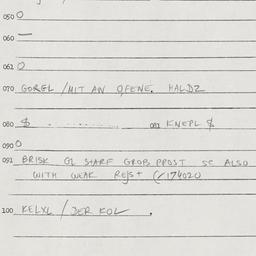 050 0
060 —
061 0
070 GORGL / MIT AN OFENE. HALDZ
080 $ 081 KNEPL $
090 0
091 BRISK GL STARF GROB PPOST SC ALSO
WITH WEAK REJST (/174020
100 KELXL / DER KOL .